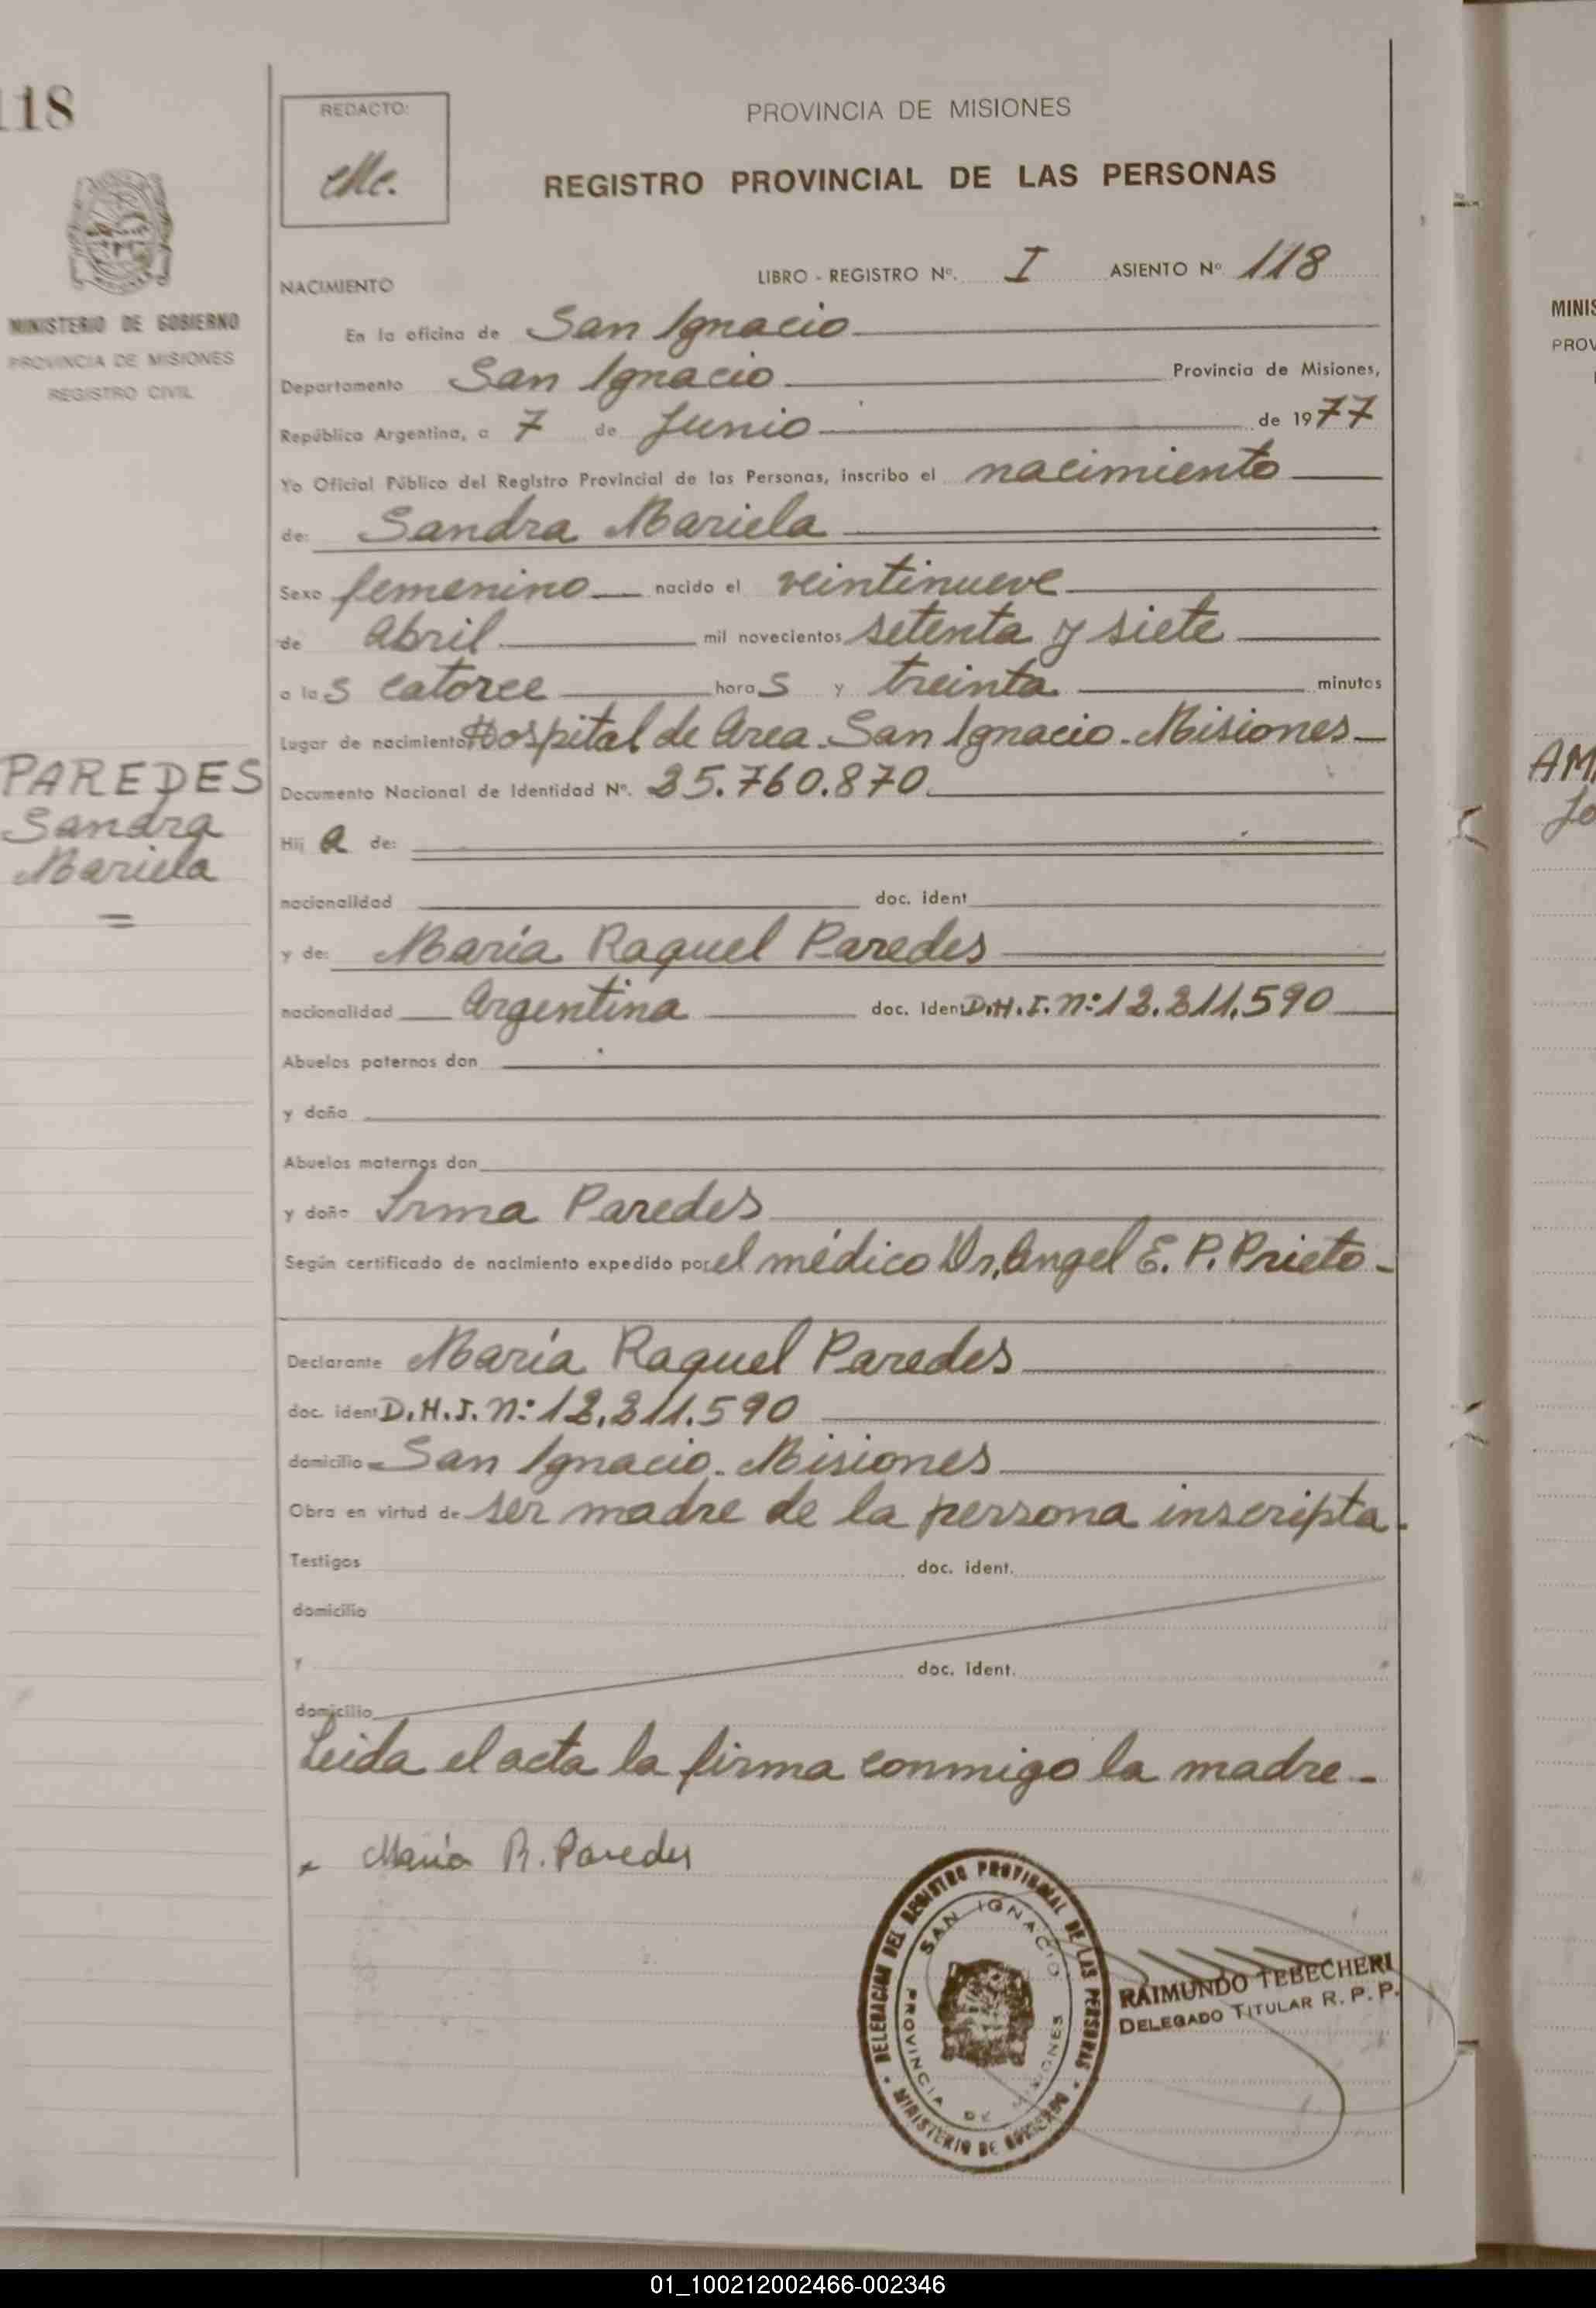 118
REDACTO:
PROVINCIA DE MISIONES
REGISTRO PROVINCIAL DE LAS PERSONAS
MINISTERIO DE GOBIERNO
PROVINCIA DE MISIONES
REGISTRO CIVIL
NACIMIENTO
LIBRO - REGISTRO Nº. I ASIENTO Nº 118
En la oficina de San Ignacio
Departamento San Ignacio Provincia de Misiones,
República Argentina, a 7 de Junio de 1977
Yo Oficial Público del Registro Provincial de las Personas, inscribo el nacimiento
de: Sandra Mariela
Sexo femenino nacido el veintinueve
de Abril mil novecientos setenta y siete
a las catorce horas y treinta minutos
Lugar de nacimiento Hospital de Area. San Ignacio. Misiones
PAREDES
Sandra
Mariela
Documento Nacional de Identidad Nº. 25.760.870.
Hija de:
nacionalidad doc. ident
y de: María Raquel Paredes
nacionalidad Argentina doc. Ident D.N.I. nº: 12.211.590
Abuelos paternos don
y doña
Abuelos maternos don
y doña Irma Paredes
Según certificado de nacimiento expedido por el médico Dr. Angel E. P. Prieto.-
Declarante María Raquel Paredes
doc. ident D.N.I. nº: 12.211.590
domicilio San Ignacio. Misiones
Obra en virtud de ser madre de la persona inscripta.
Testigos doc. ident.
domicilio
y doc. ident.
domicilio
Leida el acta la firma conmigo la madre.-
María R. Paredes
DELEGACION DEL REGISTRO PROVINCIAL DE LAS PERSONAS
SAN IGNACIO
PROVINCIA DE MISIONES
MINISTERIO DE GOBIERNO
RAIMUNDO TEBECHERI
DELEGADO TITULAR R. P. P.
MINIS
PROV
AM
Jo
01_100212002466-002346